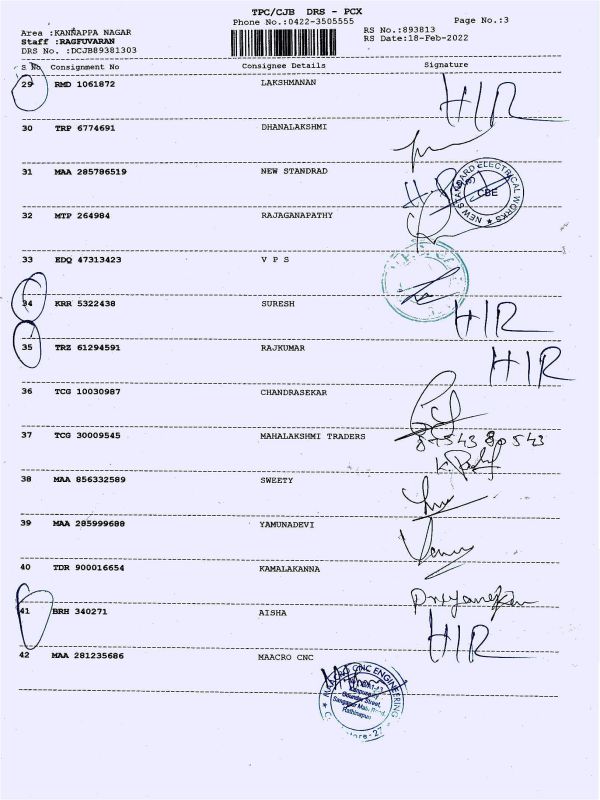 TPC/CJB DRS - PCX
Phone No.:0422-3505555
Page No.:3
Area :KANNAPPA NAGAR
RS No.:893813
Staff :RAGFUVARAN
RS Date:18-Feb-2022
DRS No. :DCJB89381303
S No Consignment No Consignee Details Signature
29 RMD 1061872 LAKSHMANAN H/R
30 TRP 6774691 DHANALAKSHMI
31 MAA 285786519 NEW STANDRAD
NEW STANDARD ELECTRICAL WORKS
CBE
32 MTP 264984 RAJAGANAPATHY
33 EDQ 47313423 V P S
34 KRR 5322438 SURESH H/R
35 TRZ 61294591 RAJKUMAR H/R
36 TCG 10030987 CHANDRASEKAR
37 TCG 30009545 MAHALAKSHMI TRADERS
87543 80543
38 MAA 856332589 SWEETY
39 MAA 285999688 YAMUNADEVI
40 TDR 900016654 KAMALAKANNA
41 BRH 340271 AISHA H/R
42 MAA 281235686 MAACRO CNC
MAACRO CNC ENGINEERING
Street,